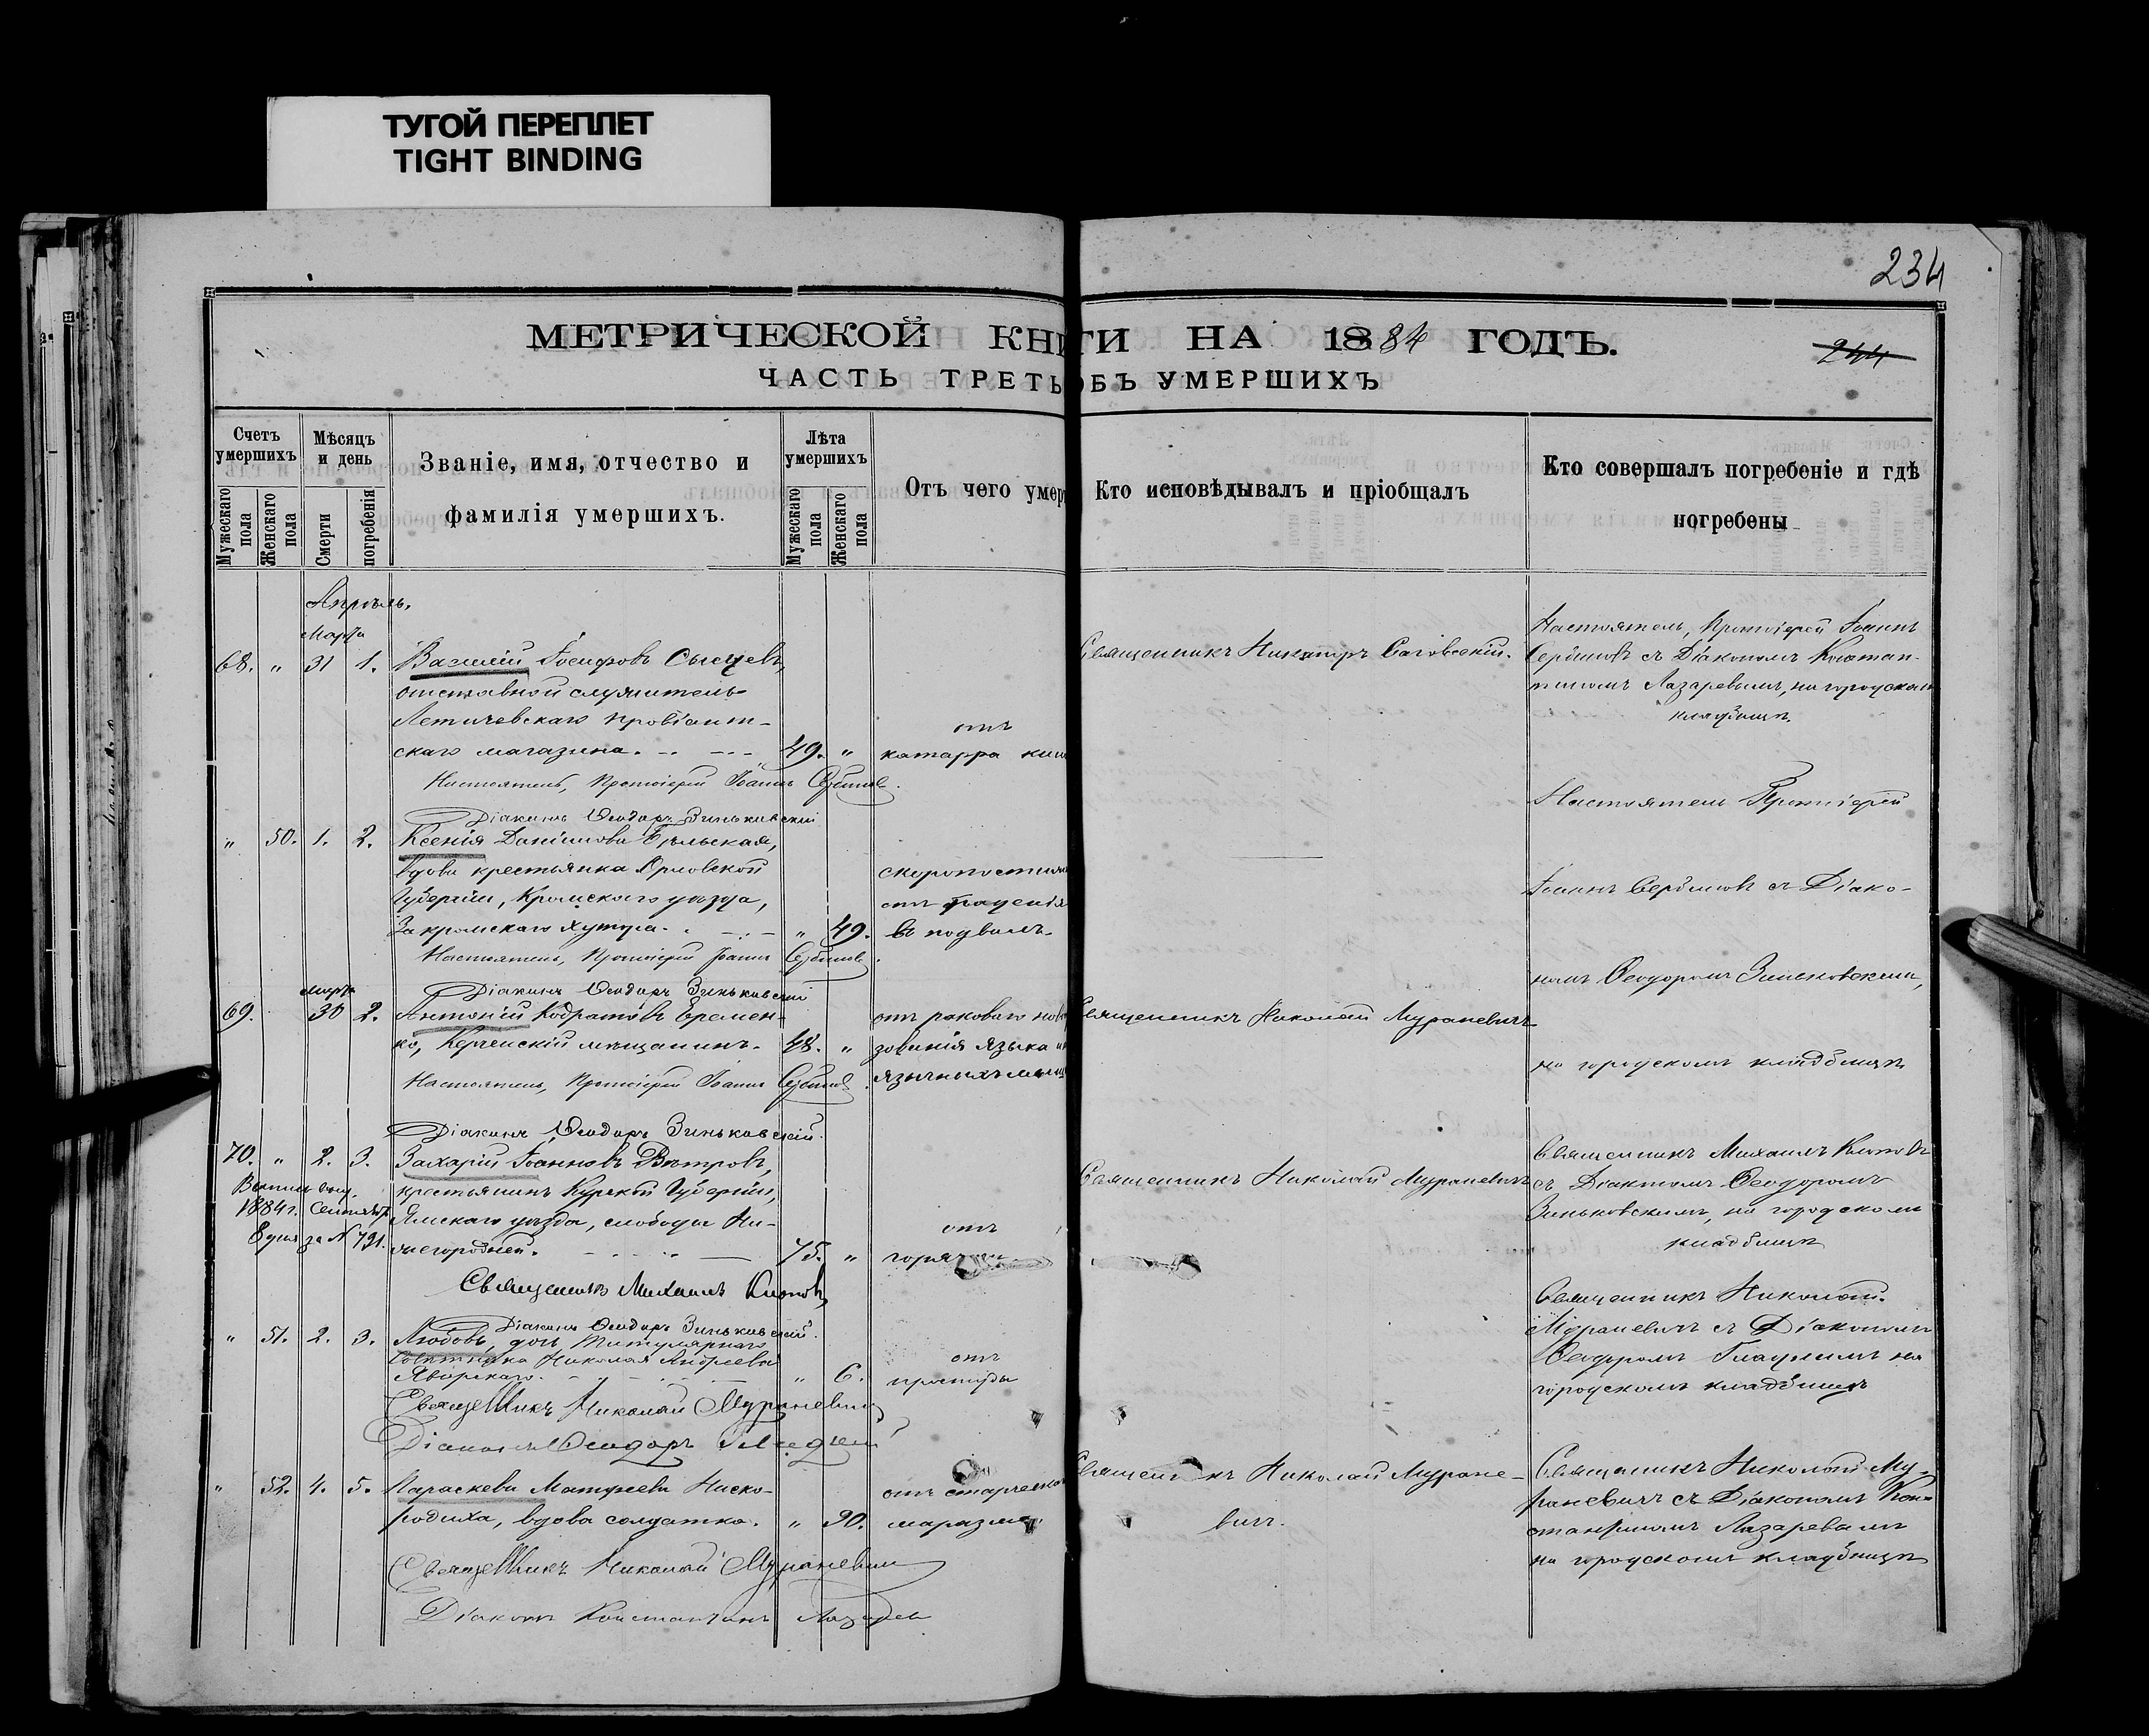 ТУГОЙ ПЕРЕПЛЕТ
TIGHT BINDING
234
МЕТРИЧЕСКОЙ КНИГИ НА 1884 ГОДЪ.
244
ЧАСТЬ ТРЕТЬ ОБЪ УМЕРШИХЪ
Счетъ умершихъ
Мужескаго пола
Женскаго пола
Мѣсяцъ и день
Смерти
погребенія
Званіе, имя, отчество и
фамилія умершихъ.
Лѣта умершихъ
Мужескаго пола
Женскаго пола
Отъ чего умер
Кто исповѣдывалъ и пріобщалъ
Кто совершалъ погребеніе и гдѣ
погребены
Апрѣль.
Марта
68. " 31 1. Василій Іосифовъ Сысцевъ,
отставной служитель
Летичевскаго провіант-
скаго магазина. 49. "
отъ
катарра киш
Священникъ Никаноръ Саговскій.
Настоятель, Протоіерей Іоаннъ
Сербиновъ съ Діакономъ Констан-
тиномъ Лазаревымъ, на городскомъ
кладбищѣ.
Настоятель, Протоіерей Іоаннъ Сербиновъ.
Діаконъ Ѳеодоръ Зиньковскій
" 50. 1. 2. Ксенія Даніилова Бѣльская,
вдова крестьянка Орловской
Губерніи, Кромскаго уѣзда,
Закромскаго Хутора. " 49.
скоропостижн
отъ паденія
въ подвалъ.
Настоятель Протоіерей
Іоаннъ Сербиновъ съ Діако-
номъ Ѳеодоромъ Зиньковскимъ,
на городскомъ кладбищѣ
Настоятель, Протоіерей Іоаннъ Сербиновъ.
Діаконъ Ѳеодоръ Зиньковскій
Марта
69. 30 2. Антоній Кодратовъ Еремен-
ко, Керченскій мѣщанинъ. 48. "
отъ раковаго ново
зованія языка и
язычныхъ
Священникъ Николай Мураневичъ
Настоятель, Протоіерей Іоаннъ Сербиновъ.
Діаконъ Ѳеодоръ Зиньковскій.
70. " 2. 3. Захарій Іоанновъ Вѣтровъ,
крестьянинъ Курской Губерніи,
Ямскаго уѣзда, слободы Ни-
жегородней. 75. "
1884 г. Сентября
8 дня за № 791.
отъ
горячки
Священникъ Николай Мураневичъ
Священникъ Михаилъ Клоповъ
съ Діакономъ Ѳеодоромъ
Зиньковскимъ, на городскомъ
кладбищѣ
Священникъ Михаилъ Клоповъ,
Діаконъ Ѳеодоръ Зиньковскій.
" 51. 2. 3. Любовь, дочь Титулярнаго
Совѣтника Николая Андреева
Яворскаго. " 6.
отъ
простуды
Священникъ Николай
Мураневичъ съ Діакономъ
Ѳеодоромъ Гладкимъ на
городскомъ кладбищѣ
Священникъ Николай Мураневичъ
Діаконъ Ѳеодоръ Гладкій
" 52. 4. 5. Параскева Матѳеева Ниско-
родиха, вдова солдатка. " 90.
отъ старческа
маразма.
Священникъ Николай Муране-
вичъ.
Священникъ Николай Му-
раневичъ съ Діакономъ Кон-
стантиномъ Лазаревымъ
на городскомъ кладбищѣ
Священникъ Николай Мураневичъ
Діаконъ Константинъ Лазаревъ